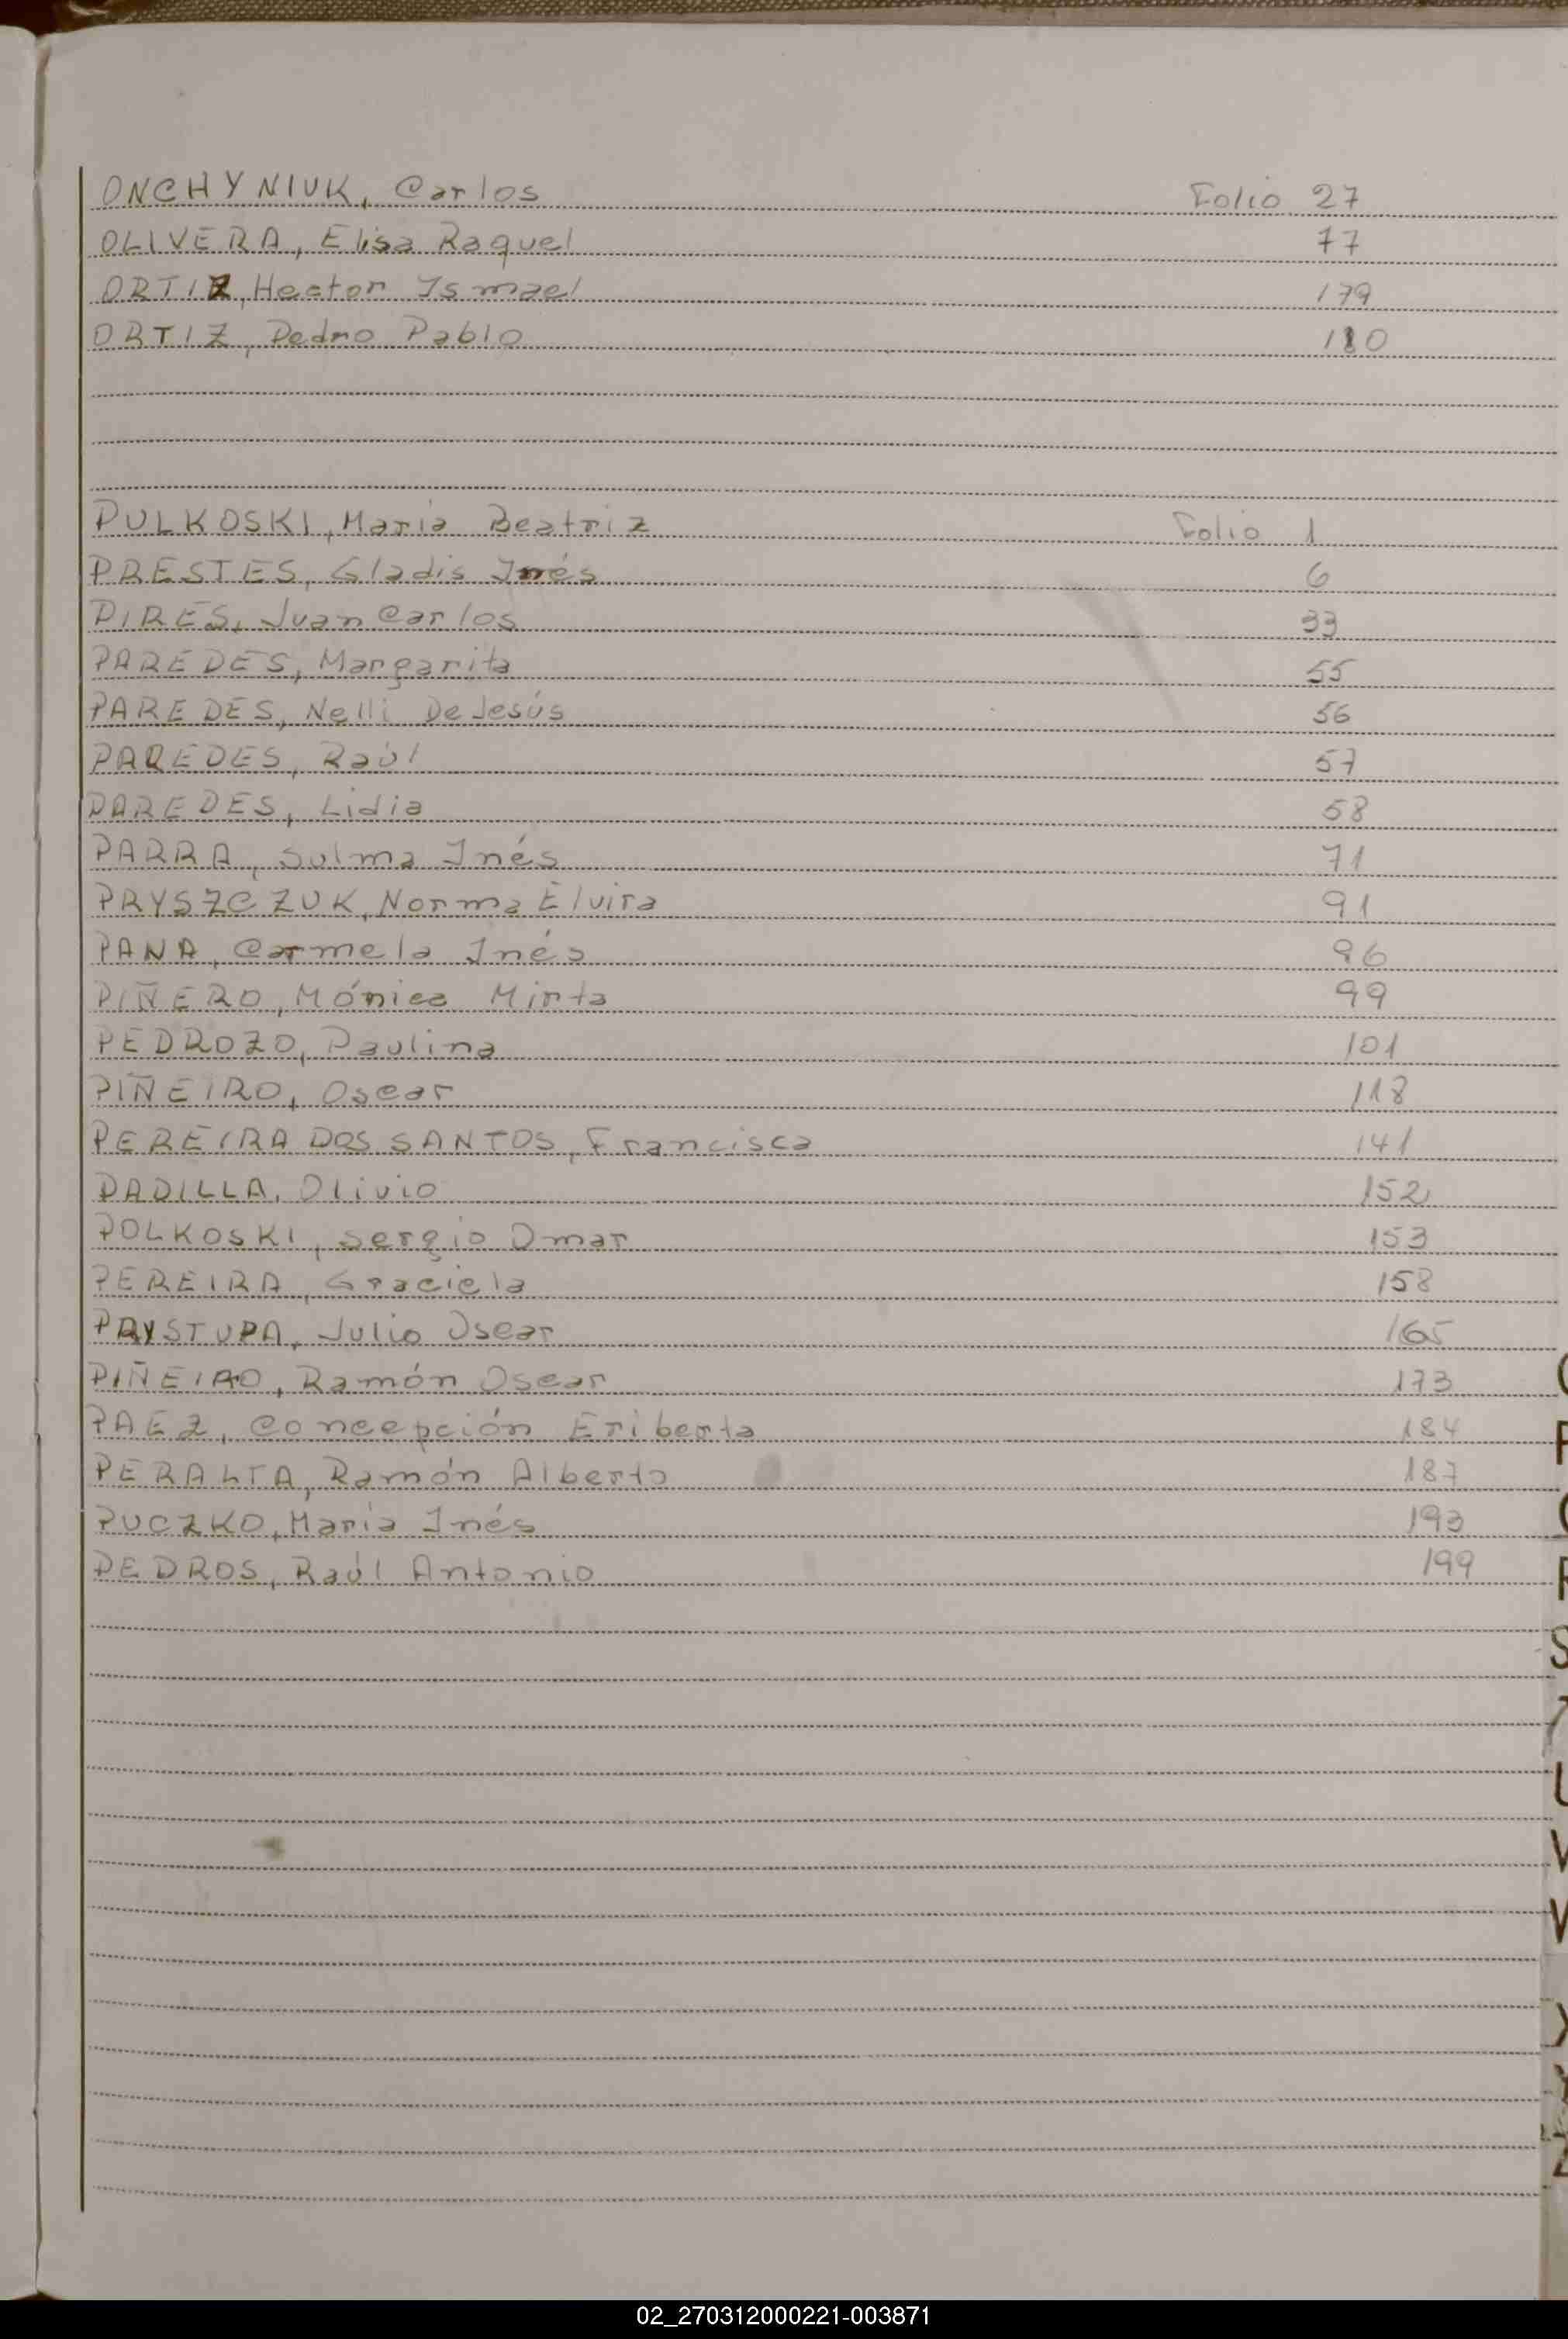 ONCHYNIUK, Carlos Folio 27
OLIVERA, Elisa Raquel 77
ORTIZ, Hector Ismael 179
ORTIZ, Pedro Pablo 180
PULKOSKI, Maria Beatriz Folio 1
PRESTES, Gladis Inés 6
PIRES, Juan Carlos 33
PAREDES, Margarita 55
PAREDES, Nelli De Jesús 56
PAREDES, Raúl 57
PAREDES, Lidia 58
PARRA, Sulma Inés 71
PRYSZCZUK, Norma Elvira 91
PANA, Carmela Inés 96
PIÑERO, Mónica Mirta 99
PEDROZO, Paulina 101
PIÑEIRO, Oscar 118
PEREIRA DOS SANTOS, Francisca 141
PADILLA, Olivio 152
POLKOSKI, Sergio Omar 153
PEREIRA, Graciela 158
PRYSTUPA, Julio Oscar 165
PIÑEIRO, Ramón Oscar 173
PAEZ, Concepción Eriberta 184
PERALTA, Ramón Alberto 187
PUCZKO, María Inés 193
PEDROS, Raúl Antonio 199
02_270312000221-003871